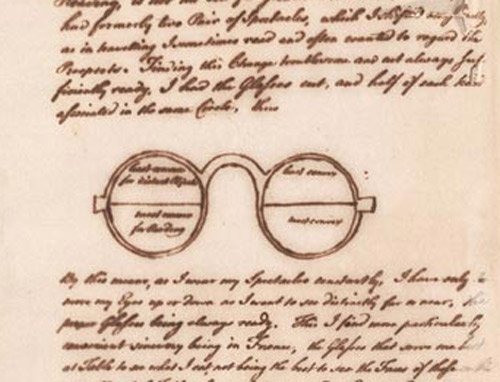 had formerly two Pair of Spectacles, which I shifted
as in travelling I sometimes read and often wanted to regard the
Prospects. Finding this Change troublesome and not always suf-
ficiently ready, I had the Glasses cut, and half of each kind
associated in the same Circle, thus
least convex
for distant Objects
least convex
most convex
for Reading
most convex
By this means, as I wear my Spectacles constantly, I have only to
move my Eyes up or down as I want to see distinctly far or near, the
proper Glasses being always ready. This I find more particularly
convenient since my being in France, the Glasses that serve me best
at Table to see what I eat, not being the best to see the Faces of those on the